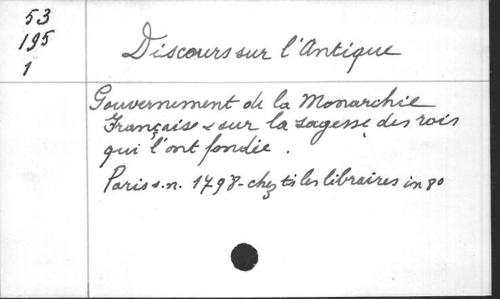 53
195
1
Discours sur l'Antique
Gouvernement de la Monarchie
Française & sur la sagesse des rois
qui l'ont fondée.
Paris s.n. 1798 - chez ts les libraires in 80